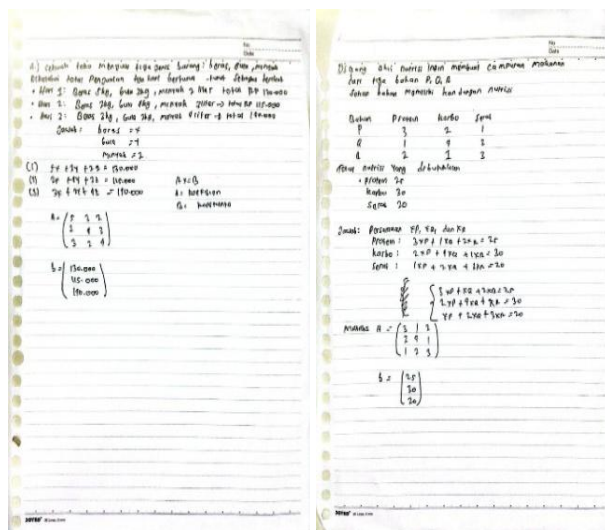 No.
Date
A.) sebuah toko menjual tiga jenis barang: beras, gula, minyak
total
Hari 1: Beras 5kg, Gula 3kg, minyak 2 liter total RP 130.000
Hari 2: Beras 2kg, Gula 4kg, minyak 3 liter → total RP 115.000
Hari 3: Beras 3kg, Gula 2kg, minyak 4 liter → total 140.000
Jawab: beras = x
Gula = y
minyak = z
(1) 5x + 3y + 2z = 130.000
(2) 2x + 4y + 3z = 115.000 Ax = B
(3) 3x + 2y + 4z = 140.000 A = koefisien
B = konstanta
A = ( 5 3 2
2 4 3
3 2 4 )
b = ( 130.000
115.000
140.000 )
No.
Date
ahli nutrisi ingin membuat campuran makanan
dari tiga bahan P, Q, R
Setiap bahan kandungan nutrisi
Bahan Protein karbo Serat
P 3 2 1
Q 1 4 2
R 2 1 3
nutrisi yang dibutuhkan
• Protein 25
karbo 30
Serat 20
Jawab: Persamaan XP, XQ, dan XR
Protein : 3XP + 1XQ + 2XR = 25
karbo : 2XP + 4XQ + 1XR = 30
Serat : 1XP + 2XQ + 3XR = 20
3XP + XQ + 2XR = 25
2XP + 4XQ + XR = 30
XP + 2XQ + 3XR = 20
Matriks A = ( 3 1 2
2 4 1
1 2 3 )
b = ( 25
30
20 )